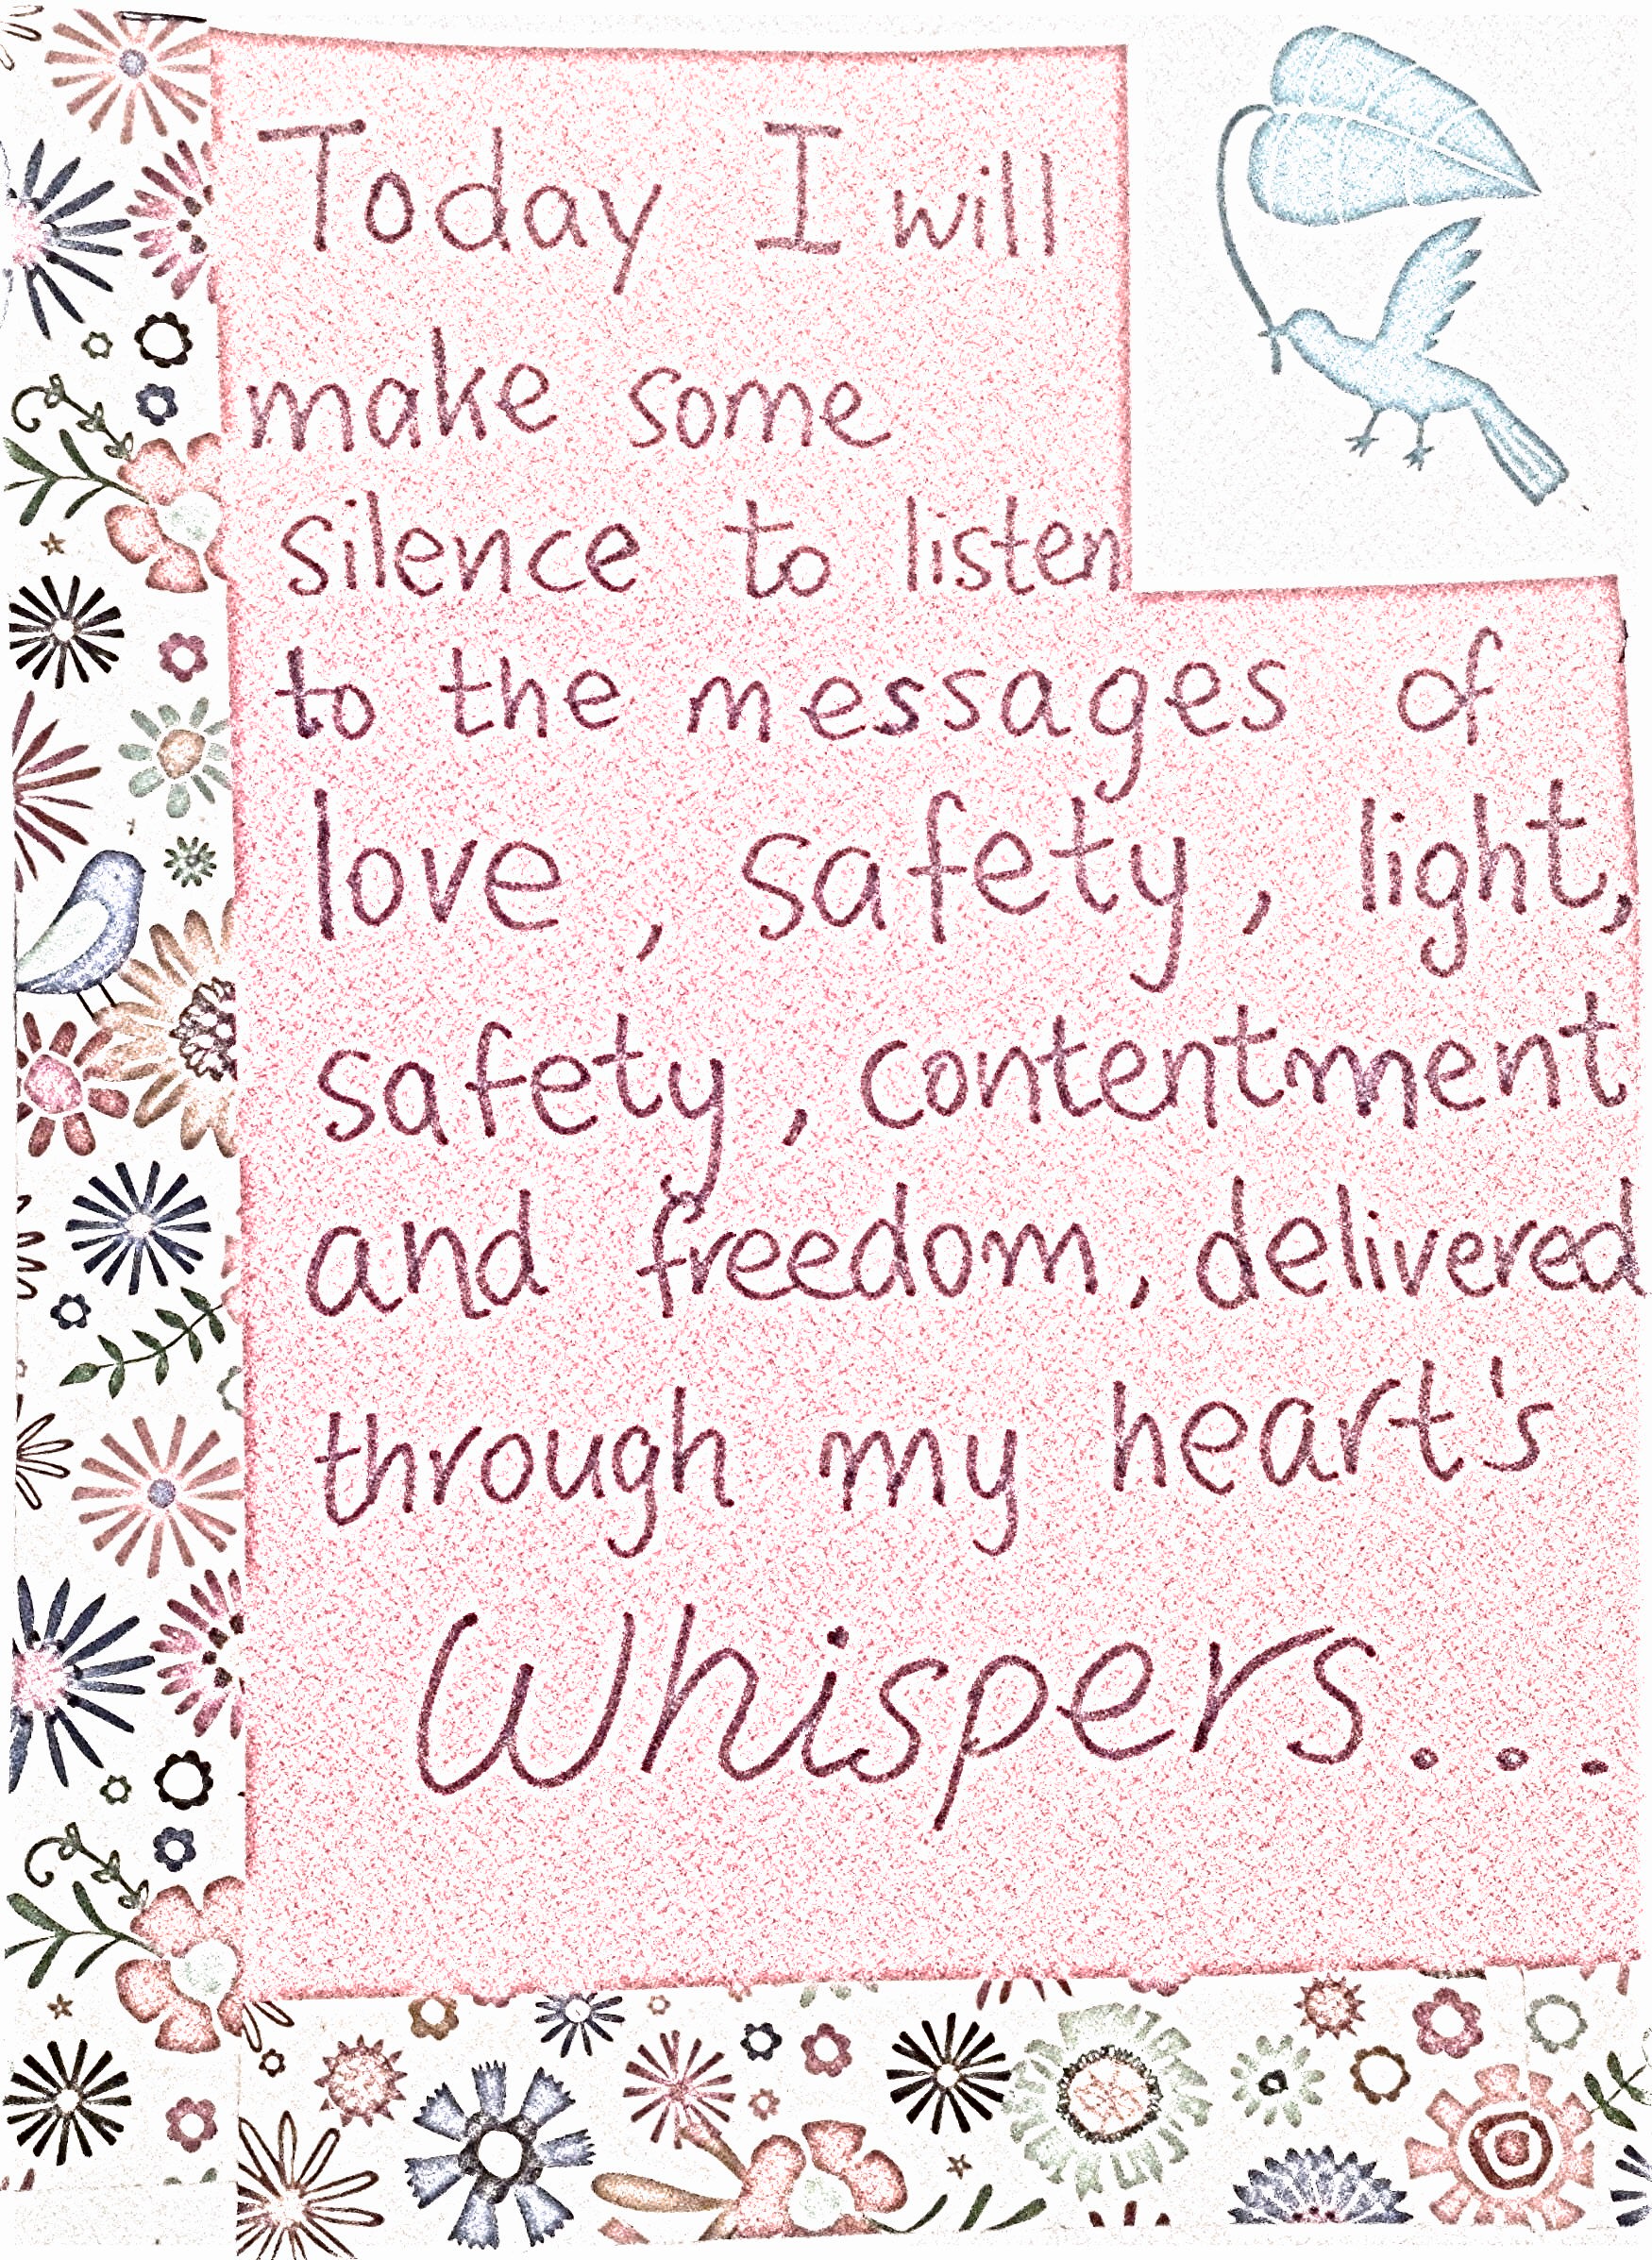 Today I will
make some
silence to listen
to the messages of
love, safety, light,
safety, contentment
and freedom, delivered
through my heart's
Whispers...